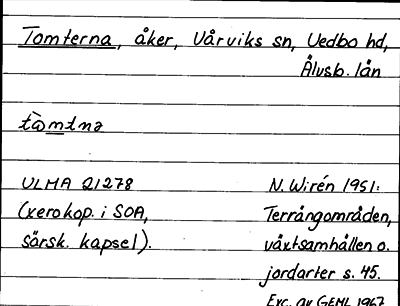 Tomterna, åker, Vårviks sn, Vedbo hd,
Älvsb. län
tò̀mtnə
ULMA 21278
(xerokop. i SOA,
särsk. kapsel).
N. Wirén 1951:
Terrängområden,
växtsamhällen o.
jordarter s. 45.
Exc. av GEML 1967